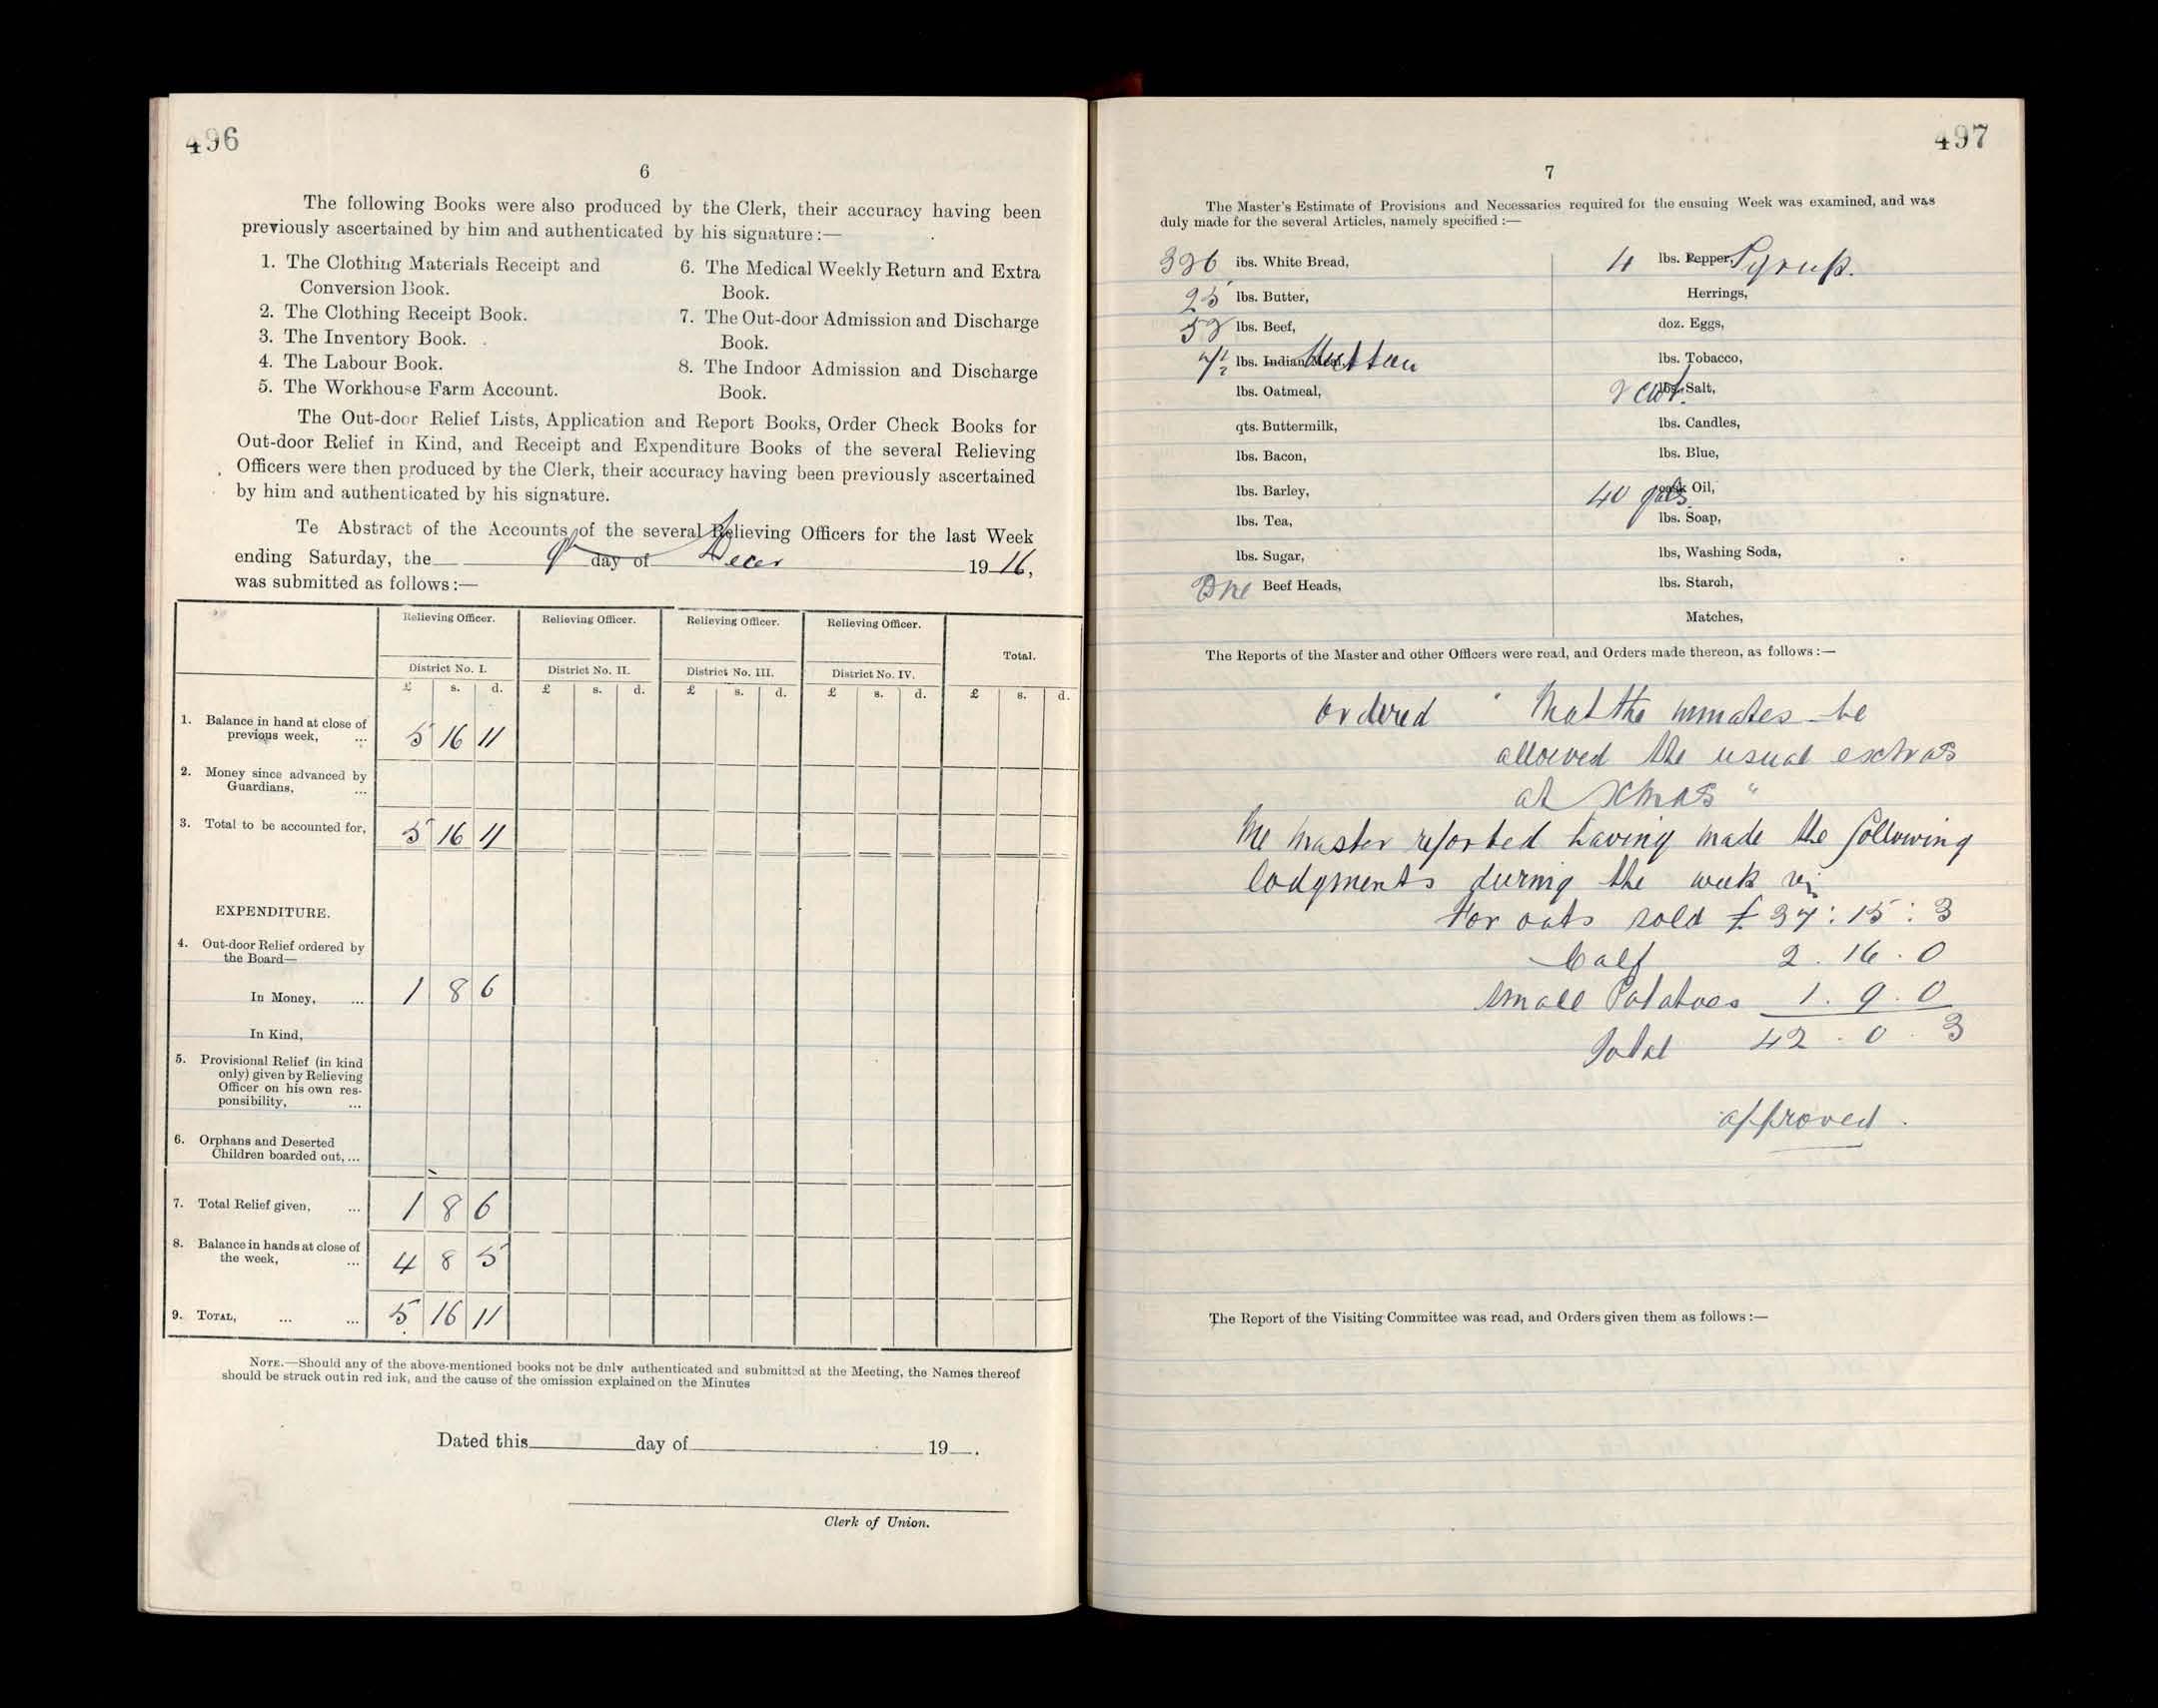 496
6
The following Books were also produced by the Clerk, their accuracy having been
previously ascertained by him and authenticated by his signature :—
1. The Clothing Materials Receipt and
Conversion Book.
2. The Clothing Receipt Book.
3. The Inventory Book.
4. The Labour Book.
5. The Workhouse Farm Account.
6. The Medical Weekly Return and Extra
Book.
7. The Out-door Admission and Discharge
Book.
8. The Indoor Admission and Discharge
Book.
The Out-door Relief Lists, Application and Report Books, Order Check Books for
Out-door Relief in Kind, and Receipt and Expenditure Books of the several Relieving
Officers were then produced by the Clerk, their accuracy having been previously ascertained
by him and authenticated by his signature.
Te Abstract of the Accounts of the several Relieving Officers for the last Week
ending Saturday, the 9th day of Decer 1916,
was submitted as follows :—
Relieving Officer. Relieving Officer. Relieving Officer. Relieving Officer.
Total.
District No. I. District No. II. District No. III. District No. IV.
£ s. d. £ s. d. £ s. d. £ s. d. £ s. d.
1. Balance in hand at close of
previous week, ... 5 16 11
2. Money since advanced by
Guardians, ...
3. Total to be accounted for, 5 16 11
EXPENDITURE.
4. Out-door Relief ordered by
the Board—
In Money, ... 1 8 6
In Kind,
5. Provisional Relief (in kind
only) given by Relieving
Officer on his own res-
ponsibility, ...
6. Orphans and Deserted
Children boarded out, ...
7. Total Relief given, ... 1 8 6
8. Balance in hands at close of
the week, ... 4 8 5
9. TOTAL, ... ... 5 16 11
NOTE.—Should any of the above-mentioned books not be dnly authenticated and submitted at the Meeting, the Names thereof
should be struck out in red ink, and the cause of the omission explained on the Minutes
Dated this day of 19 .
Clerk of Union.
497
7
The Master's Estimate of Provisions and Necessaries required for the ensuing Week was examined, and was
duly made for the several Articles, namely specified :—
326 lbs. White Bread,
25 lbs. Butter,
52 lbs. Beef,
7½ lbs. Indian Meal, Mutton
lbs. Oatmeal,
qts. Buttermilk,
lbs. Bacon,
lbs. Barley,
lbs. Tea,
lbs. Sugar,
One Beef Heads,
4 lbs. Pepper, Syrup.
Herrings,
doz. Eggs,
lbs. Tobacco,
2 cwt. lbs. Salt,
lbs. Candles,
lbs. Blue,
40 gals. cask Oil,
lbs. Soap,
lbs, Washing Soda,
lbs. Starch,
Matches,
The Reports of the Master and other Officers were read, and Orders made thereon, as follows :—
Ordered " That the inmates be
allowed the usual extras
at Xmas "
The Master reported having made the following
lodgments during the week viz
For oats sold £37 : 15 : 3
Calf 2 . 16 . 0
Small Potatoes 1 . 9 . 0
Total 42 . 0 . 3
approved .
The Report of the Visiting Committee was read, and Orders given them as follows :—